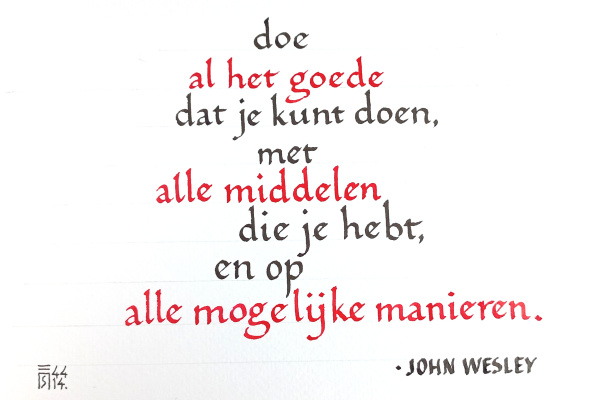 doe
al het goede
dat je kunt doen,
met
alle middelen
die je hebt,
en op
alle mogelijke manieren.
· JOHN WESLEY
44
14.